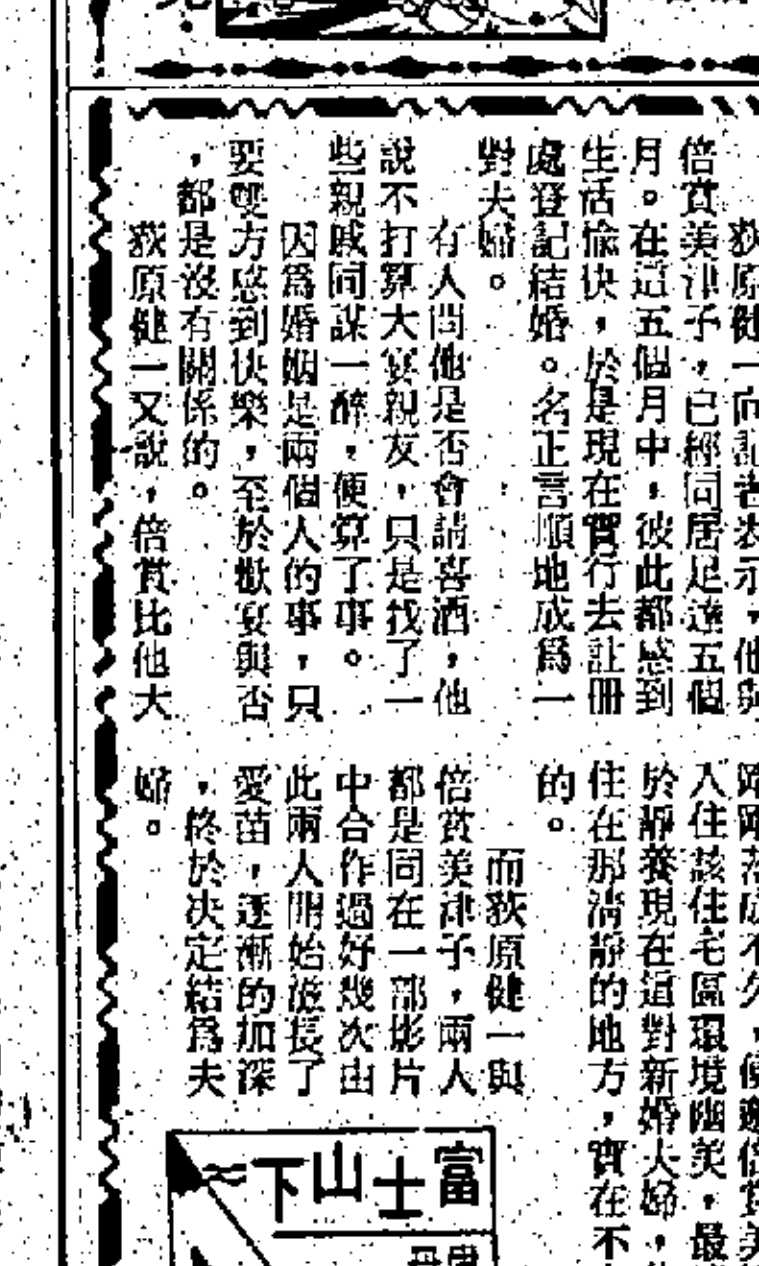 荻原健一向記者表示，他與
倍賞美津子，已經同居足達五個
月。在這五個月中，彼此都感到
生活愉快，於是現在實行去註冊
處登記結婚。名正言順地成爲一
對夫婦。
有人問他是否會請喜酒，他
說不打算大宴親友，只是找了一
些親戚同謀一醉，便算了事。
因爲婚姻是兩個人的事，只
要雙方感到快樂，至於歡宴與否
，都是沒有關係的。
荻原健一又說，倍賞比他大
落成不久，便邀倍賞美
入住該住宅區環境幽美，最
於靜養現在這對新婚夫婦，
住在那清靜的地方，實在不
的。
而荻原健一與
倍賞美津子，兩人
都是同在一部影片
中合作過好幾次由
此兩人開始滋長了
愛苗，逐漸的加深
，終於决定結爲夫
婦。
富士山下